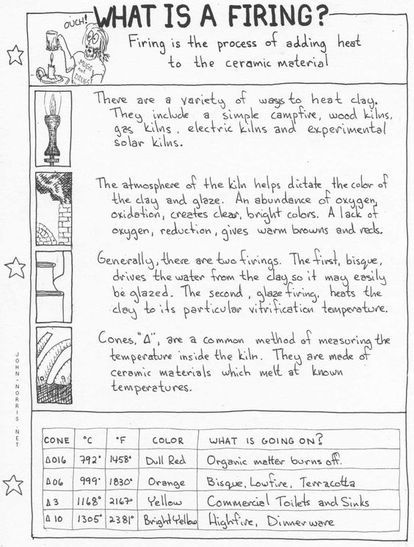 OUCH!
WHAT IS A FIRING?
Firing is the process of adding heat
to the ceramic material
There are a variety of ways to heat clay.
They include a simple campfire, wood kilns,
gas kilns, electric kilns and experimental
solar kilns.
The atmosphere of the kiln helps dictate the color of
the clay and glaze. An abundance of oxygen,
oxidation, creates clear, bright colors. A lack of
oxygen, reduction, gives warm browns and reds.
Generally, there are two firings. The first, bisque,
drives the water from the clay so it may easily
be glazed. The second, glaze firing, heats the
clay to its particular vitrification temperature.
Cones, "Δ", are a common method of measuring the
temperature inside the kiln. They are made of
ceramic materials which melt at known
temperatures.
JOHN-NORRIS.NET
CONE °C °F COLOR WHAT IS GOING ON?
Δ016 792° 1458° Dull Red Organic matter burns off.
Δ06 999° 1830° Orange Bisque, Lowfire, Terracotta
Δ3 1168° 2167° Yellow Commercial Toilets and Sinks
Δ10 1305° 2381° Bright Yellow Highfire, Dinnerware